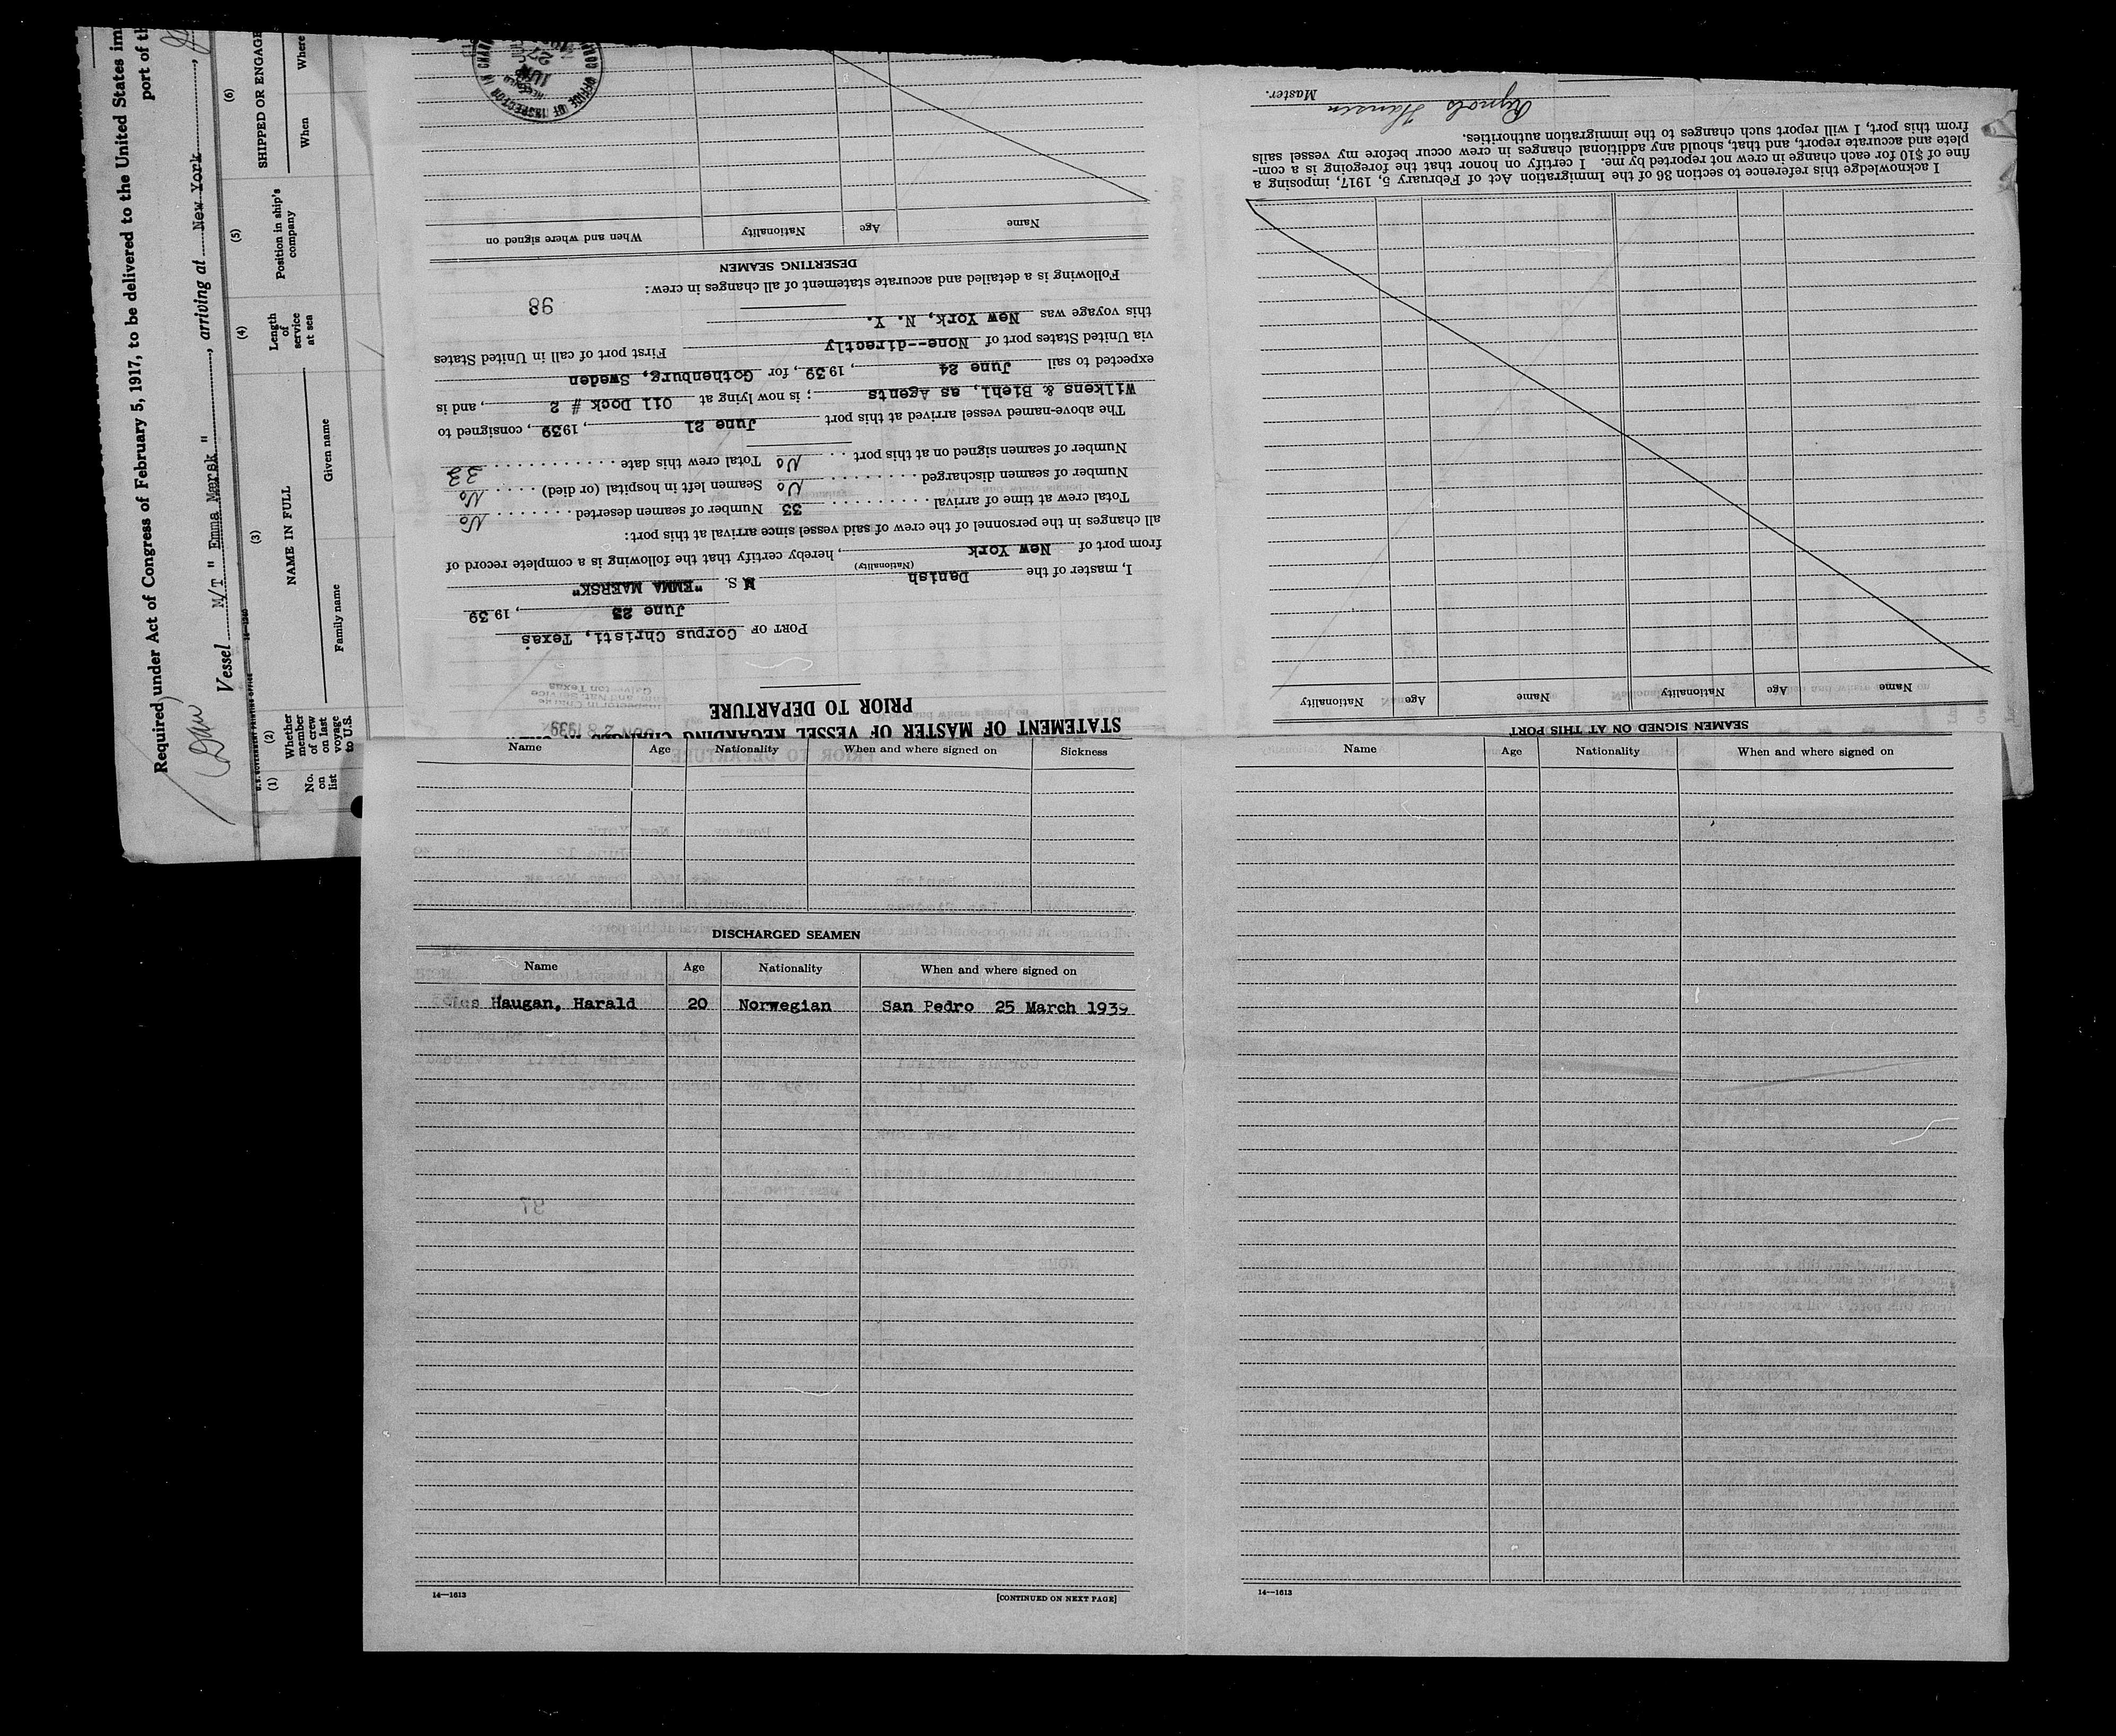 Required under Act of Congress of February 5, 1917, to be delivered to the United States
port of
Vessel M/T " Emma Mærsk ", arriving at New York
(1) (2) (3) (4) (5) (6)
No. on list
Whether member of crew on last voyage to U.S.
NAME IN FULL
Family name Given name
Length of service at sea
Position in ship's company
SHIPPED OR ENGAGE
When Where
STATEMENT OF MASTER OF VESSEL REGARDING
PRIOR TO DEPARTURE
PORT OF Corpus Christi, Texas
June 23, 1939
I, master of the Danish M S. "EMMA MAERSK"
(Nationality)
from port of New York, hereby certify that the following is a complete record of
all changes in the personnel of the crew of said vessel since arrival at this port:
Total crew at time of arrival 33 Number of seamen deserted No
Number of seamen discharged No Seamen left in hospital (or died) No
Number of seamen signed on at this port No Total crew this date 33
The above-named vessel arrived at this port June 21, 1939, consigned to
Wilkens & Biehl, as Agents; is now lying at Oil Dock # 2, and is
expected to sail June 24, 1939, for Gothenburg, Sweden
via United States port of None--directly First port of call in United States
this voyage was New York, N. Y.
98
Following is a detailed and accurate statement of all changes in crew:
DESERTING SEAMEN
Name Age Nationality When and where signed on
OFFICE OF INSPECTOR IN
JUN 27
SEAMEN SIGNED ON AT THIS PORT
Name Age Nationality Name Age Nationality
I acknowledge this reference to section 36 of the Immigration Act of February 5, 1917, imposing a
fine of $10 for each change in crew not reported by me. I certify on honor that the foregoing is a com-
plete and accurate report, and that, should any additional changes in crew occur before my vessel sails
from this port, I will report such changes to the immigration authorities.
Hansen
Master.
Name Age Nationality When and where signed on Sickness
DISCHARGED SEAMEN
Name Age Nationality When and where signed on
Haugan, Harald 20 Norwegian San Pedro 25 March 1939
14—1613 [CONTINUED ON NEXT PAGE]
Name Age Nationality When and where signed on
14—1613